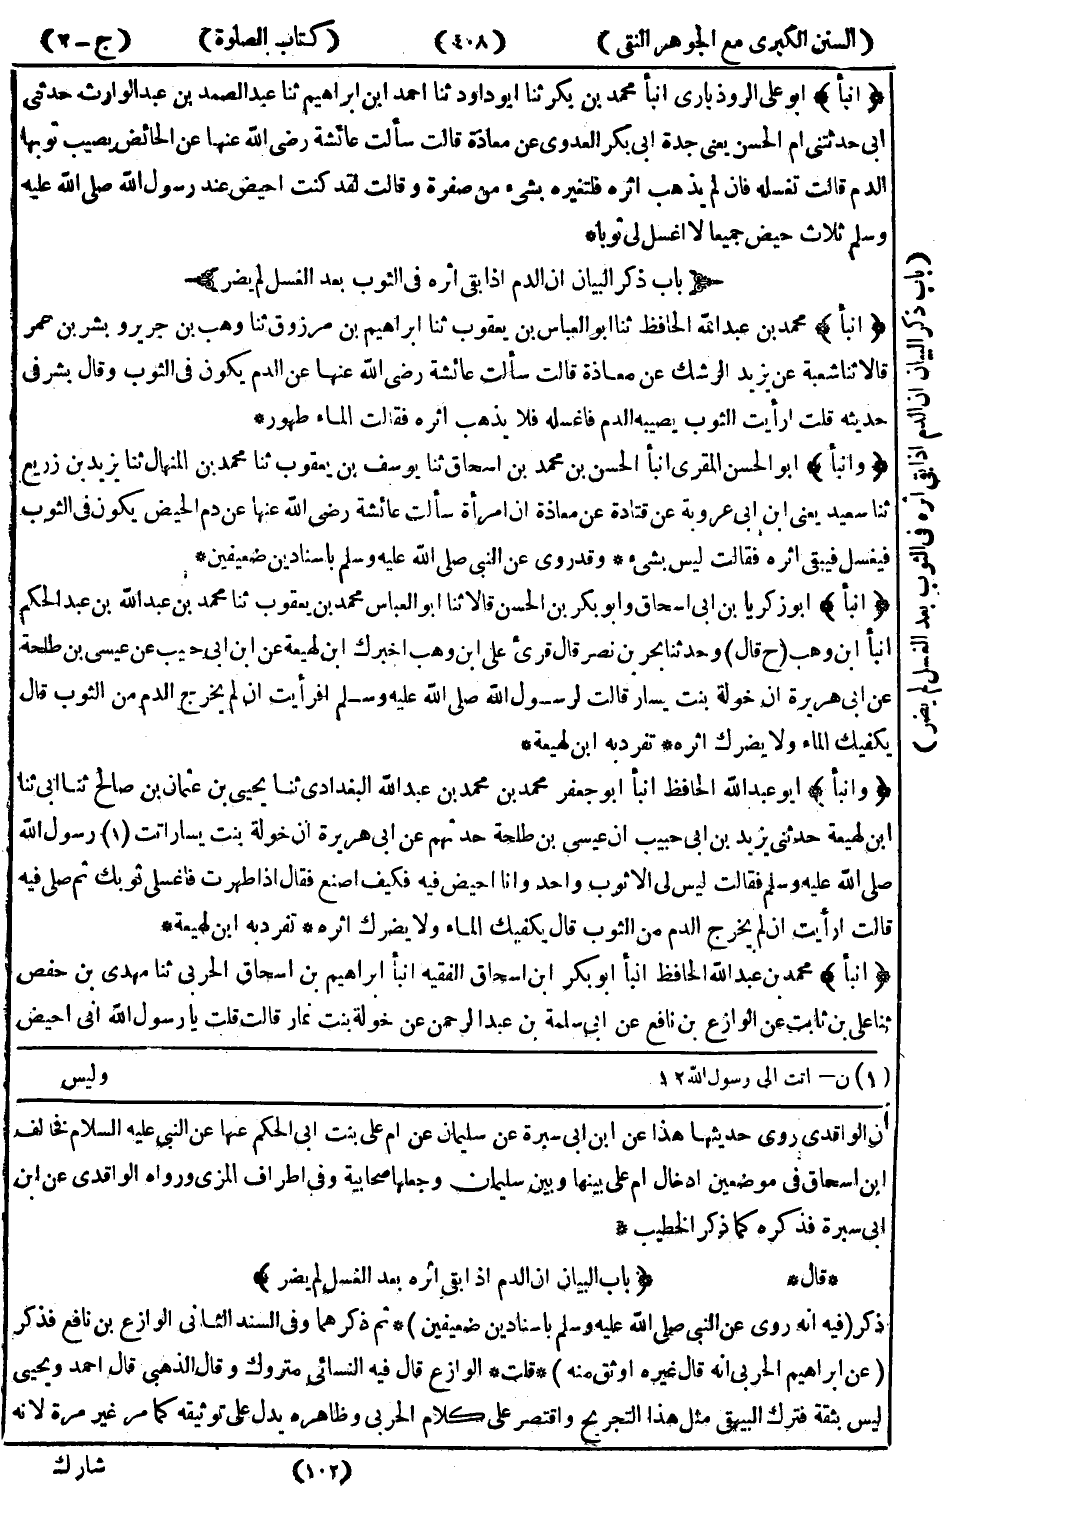 (السنن الكبرى مع الجوهر النقى) (٤٠٨) (كتاب الصلوة) (ج-٢)
﴿ انبأ ﴾ ابو على الروذبارى انبأ محمد بن بكر ثنا ابو داود ثنا احمد ابن ابراهيم ثنا عبد الصمد بن عبد الوارث حدثنى
ابى حدثتنى ام الحسن يعنى جدة ابى بكر العدوى عن معاذة قالت سألت عائشة رضى الله عنها عن الحائض يصيب ثوبها
الدم قالت تغسله فان لم يذهب اثره فلتغيره بشىء من صفرة وقالت لقد كنت احيض عند رسول الله صلى الله عليه
وسلم ثلاث حيض جميعا لا اغسل لى ثوبا*
باب ذكر البيان ان الدم اذا بقى أثره فى الثوب بعد الغسل لم يضر
﴿ انبأ ﴾ محمد بن عبد الله الحافظ ثنا ابو العباس بن يعقوب ثنا ابراهيم بن مرزوق ثنا وهب بن جرير و بشر بن عمر
قالا ثنا شعبة عن يزيد الرشك عن معاذة قالت سألت عائشة رضى الله عنها عن الدم يكون فى الثوب وقال بشر فى
حديثه قلت ارأيت الثوب يصيبه الدم فاغسله فلا يذهب اثره فقالت الماء طهور*
﴿ وانبأ ﴾ ابو الحسن المقرى انبأ الحسن بن محمد بن اسحاق ثنا يوسف بن يعقوب ثنا محمد بن المنهال ثنا يزيد بن زريع
ثنا سعيد يعنى ابن ابى عروبة عن قتادة عن معاذة ان امرأة سألت عائشة رضى الله عنها عن دم الحيض يكون فى الثوب
فيغسل فيبقى اثره فقالت ليس بشىء * وقد روى عن النبى صلى الله عليه وسلم باسنادين ضعيفين*
﴿ انبأ ﴾ ابو زكريا بن ابى اسحاق وابو بكر بن الحسن قالا ثنا ابو العباس محمد بن يعقوب ثنا محمد بن عبد الله بن عبد الحكم
انبأ ابن وهب (ح قال) وحدثنا بحر بن نصر قال قرئ على ابن وهب اخبرك ابن لهيعة عن ابن ابى حبيب عن عيسى بن طلحة
عن ابى هريرة ان خولة بنت يسار قالت لرسول الله صلى الله عليه وسلم افرأيت ان لم يخرج الدم من الثوب قال
يكفيك الماء ولا يضرك اثره* تفرد به ابن لهيعة*
﴿ وانبأ ﴾ ابو عبد الله الحافظ انبأ ابو جعفر محمد بن محمد بن عبد الله البغدادى ثنا يحيى بن عثمان بن صالح ثنا ابى ثنا
ابن لهيعة حدثنى يزيد بن ابى حبيب ان عيسى بن طلحة حدثهم عن ابى هريرة ان خولة بنت يسار اتت (١) رسول الله
صلى الله عليه وسلم فقالت ليس لى الا ثوب واحد وانا احيض فيه فكيف اصنع فقال اذا طهرت فاغسلى ثوبك ثم صلى فيه
قالت ارأيت ان لم يخرج الدم من الثوب قال يكفيك الماء ولا يضرك اثره* تفرد به ابن لهيعة*
﴿ انبأ ﴾ محمد بن عبد الله الحافظ انبأ ابو بكر ابن اسحاق الفقيه انبأ ابراهيم بن اسحاق الحربى ثنا مهدى بن حفص
ثنا على بن ثابت عن الوازع بن نافع عن ابى سلمة بن عبد الرحمن عن خولة بنت نمار قالت قلت يا رسول الله انى احيض
(باب ذكر البيان ان الدم اذا بقى أثره فى الثوب بعد الغسل لم يضر)
(١) ن- اتت الى رسول الله ١٢ وليس
أن الواقدى روى حديثها هذا عن ابن ابى سبرة عن سليمان عن ام على بنت ابى الحكم عنها عن النبى عليه السلام فخالف
ابن اسحاق فى موضعين ادخال ام على بينها وبين سليمان وجعلها صحابية وفى اطراف المزى ورواه الواقدى عن ابن
ابى سبرة فذكره كما ذكر الخطيب *
*قال* ﴿ باب البيان ان الدم اذا بقى أثره بعد الغسل لم يضر ﴾
ذكر (فيه انه روى عن النبى صلى الله عليه وسلم باسنادين ضعيفين)* ثم ذكرهما وفى السند الثانى الوازع بن نافع فذكر
(عن ابراهيم الحربى انه قال غيره اوثق منه)*قلت* الوازع قال فيه النسائى متروك وقال الذهبى قال احمد ويحيى
ليس بثقة فترك البيهقى مثل هذا التجريح واقتصر على كلام الحربى وظاهره يدل على توثيقه كما مر غير مرة لانه
(١٠٢) شارك